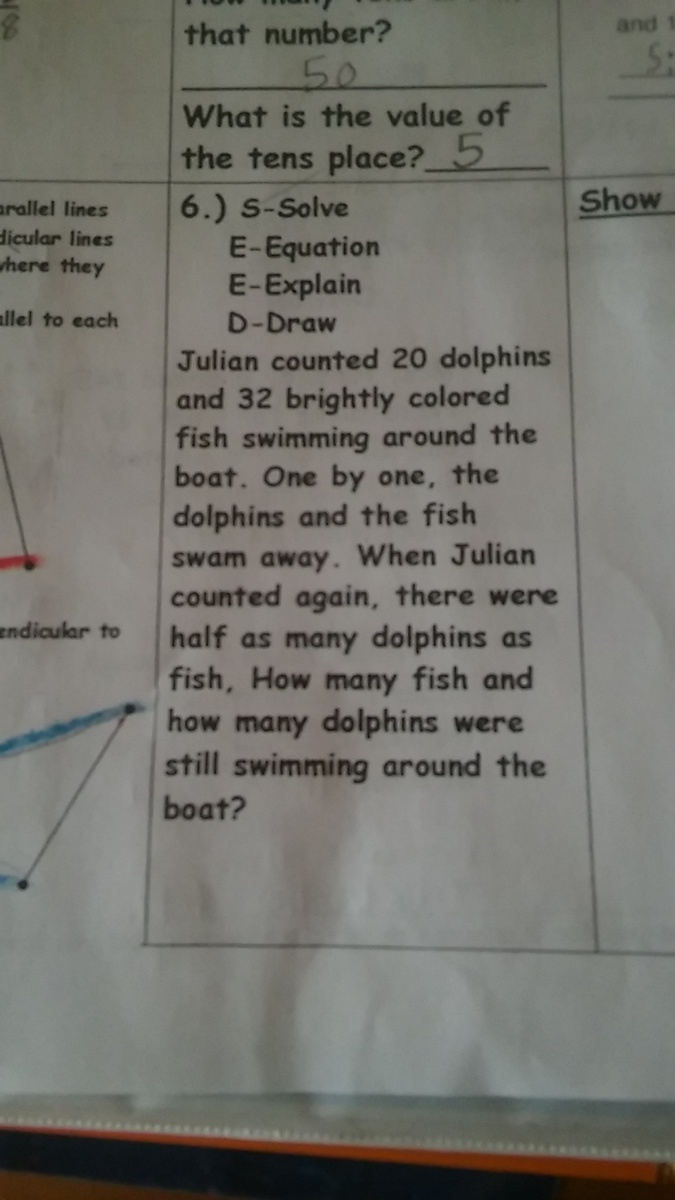 8
that number?
50
What is the value of
the tens place? 5
and
S:
arallel lines
dicular lines
where they
allel to each
endicular to
6.) S-Solve
E-Equation
E-Explain
D-Draw
Julian counted 20 dolphins
and 32 brightly colored
fish swimming around the
boat. One by one, the
dolphins and the fish
swam away. When Julian
counted again, there were
half as many dolphins as
fish, How many fish and
how many dolphins were
still swimming around the
boat?
Show